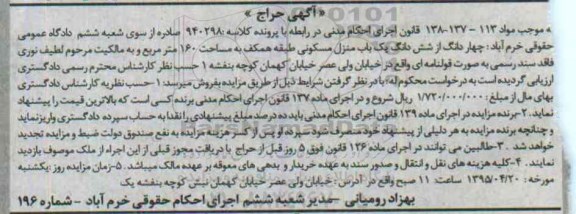 « آگهی حراج »
به موجب مواد ۱۱۳ - ۱۳۷ - ۱۳۸ قانون اجرای احکام مدنی در رابطه با پرونده کلاسه ۹۴۰۲۹۸ صادره از سوی شعبه ششم دادگاه عمومی
حقوقی خرم آباد: چهار دانگ از شش دانگ یک باب منزل مسکونی طبقه همکف به مساحت ۱۶۰ متر مربع و به مالکیت مرحوم لطیف نوری
فاقد سند رسمی به صورت قولنامه ای واقع در خیابان ولی عصر خیابان کهمان کوچه بنفشه ۱ حسب نظر کارشناس محترم رسمی دادگستری
ارزیابی گردیده است به درخواست محکوم له با در نظر گرفتن شرایط ذیل از طریق مزایده بفروش میرسد: ۱- حسب نظریه کارشناس دادگستری
بهای مال از مبلغ: ۱/۷۲۰/۰۰۰/۰۰۰ ریال شروع و در اجرای ماده ۱۳۷ قانون اجرای احکام مدنی برنده کسی است که بالاترین قیمت را پیشنهاد
نماید. ۲- برنده مزایده در اجرای ماده ۱۳۹ قانون اجرای احکام مدنی باید ده درصد مبلغ پیشنهادی را نقدا به حساب سپرده دادگستری واریز نماید
و چنانچه برنده مزایده به هر دلیلی از پیشنهاد خود منصرف شود سپرده او پس از کسر هزینه مزایده به نفع صندوق دولت ضبط و مزایده تجدید
خواهد شد. ۳- طالبین می توانند در اجرای ماده ۱۲۶ قانون فوق ۵ روز قبل از حراج با دریافت مجوز قبلی از این اجراء از ملک موصوف بازدید
نمایند. ۴- کلیه هزینه های نقل و انتقال و صدور سند به عهده خریدار و بدهی های معوقه بر عهده مالک میباشد. ۵- زمان مزایده روز: یکشنبه
مورخه: ۱۳۹۵/۰۴/۲۰ ساعت: ۱۱ صبح واقع در آدرس: خیابان ولی عصر خیابان کهمان نبش کوچه بنفشه یک
بهزاد رومیانی - مدیر شعبه ششم اجرای احکام حقوقی خرم آباد - شماره ۱۹۶